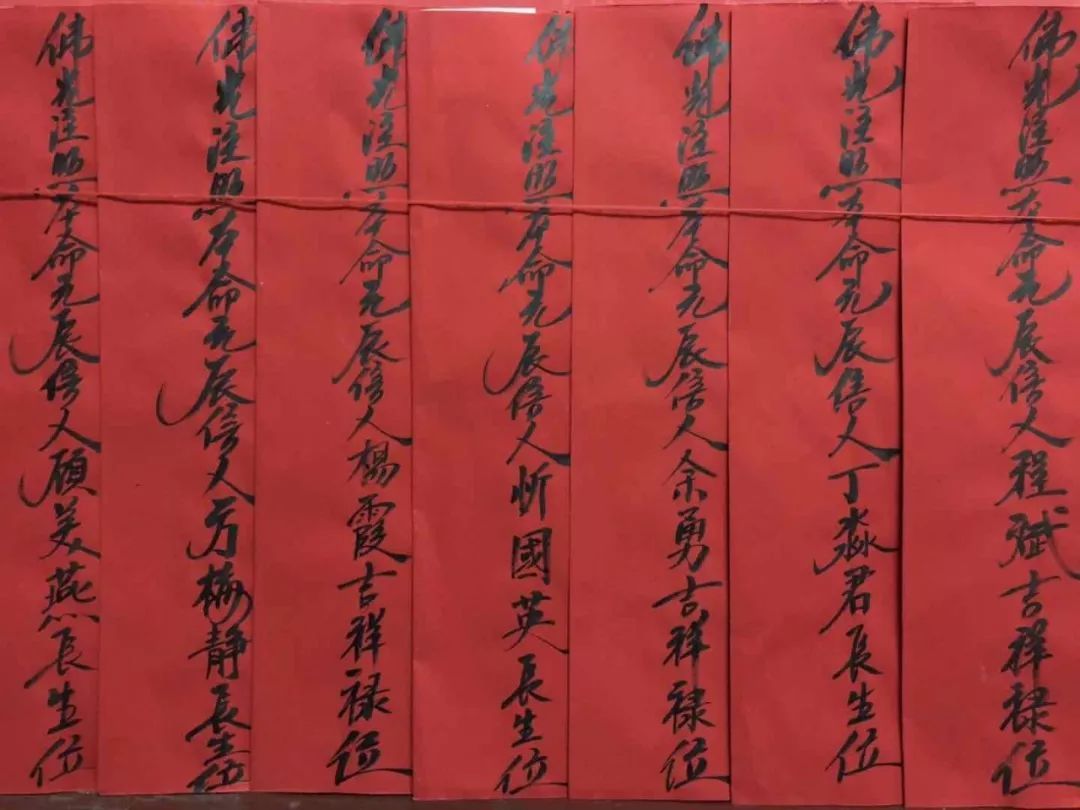 佛光注照本命元辰信人程斌吉祥禄位
佛光注照本命元辰信人丁淼君長生位
佛光注照本命元辰信人余勇吉祥禄位
佛光注照本命元辰信人忻國英長生位
佛光注照本命元辰信人楊霞吉祥禄位
佛光注照本命元辰信人方梅静長生位
佛光注照本命元辰信人顧美燕長生位